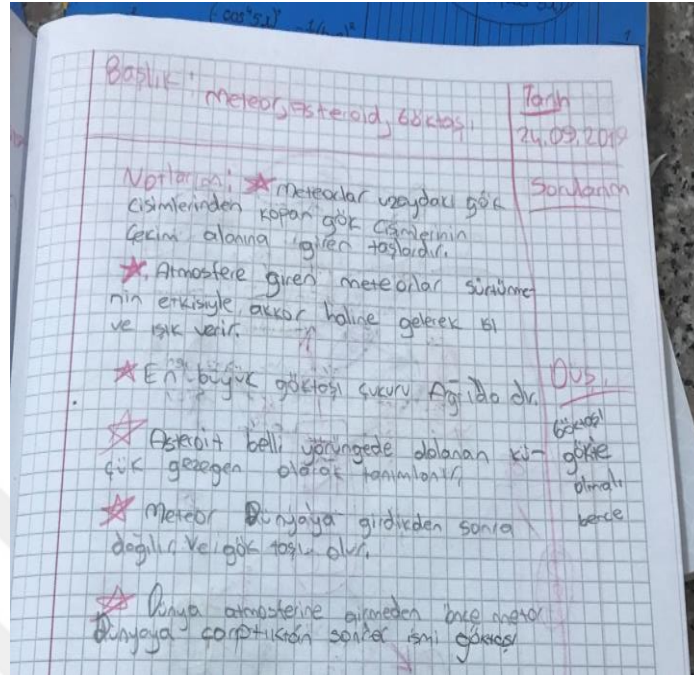 (-cos²5x)²
Başlık: Meteor, esteroid, Göktaşı
Tarih
24.09.2019
Notlarım: Meteorlar uzaydaki gök
cisimlerinden kopan gök cisimlerinin
Çekim alanına giren taşlardır.
Sorularım
Atmosfere giren meteorlar sürtünme
nin etkisiyle akkor haline gelerek ısı
ve ışık verir.
En büyük göktaşı çukuru Ağrı'da dır.
Asteroit belli yörüngede dolanan kü-
çük gezegen olarak tanımlanır.
Meteor Dünyaya girdikden sonra
dağılır ve gök taşı olur.
Dünya atmosferine girmeden önce meteor
Dünyaya çarptıktan sonra ismi göktaşı
Duş.
Göktaşı
gökte
olmalı
bence